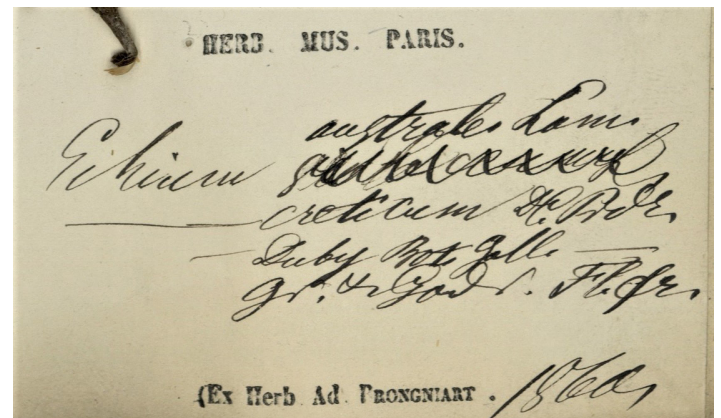 HERB. MUS. PARIS.
australe Lam.
Echium
creticum DC. Prodr.
— Duby Bot. Gall. —
Gr. & Godr. Fl. fr.
(Ex Herb Ad BRONGNIART.